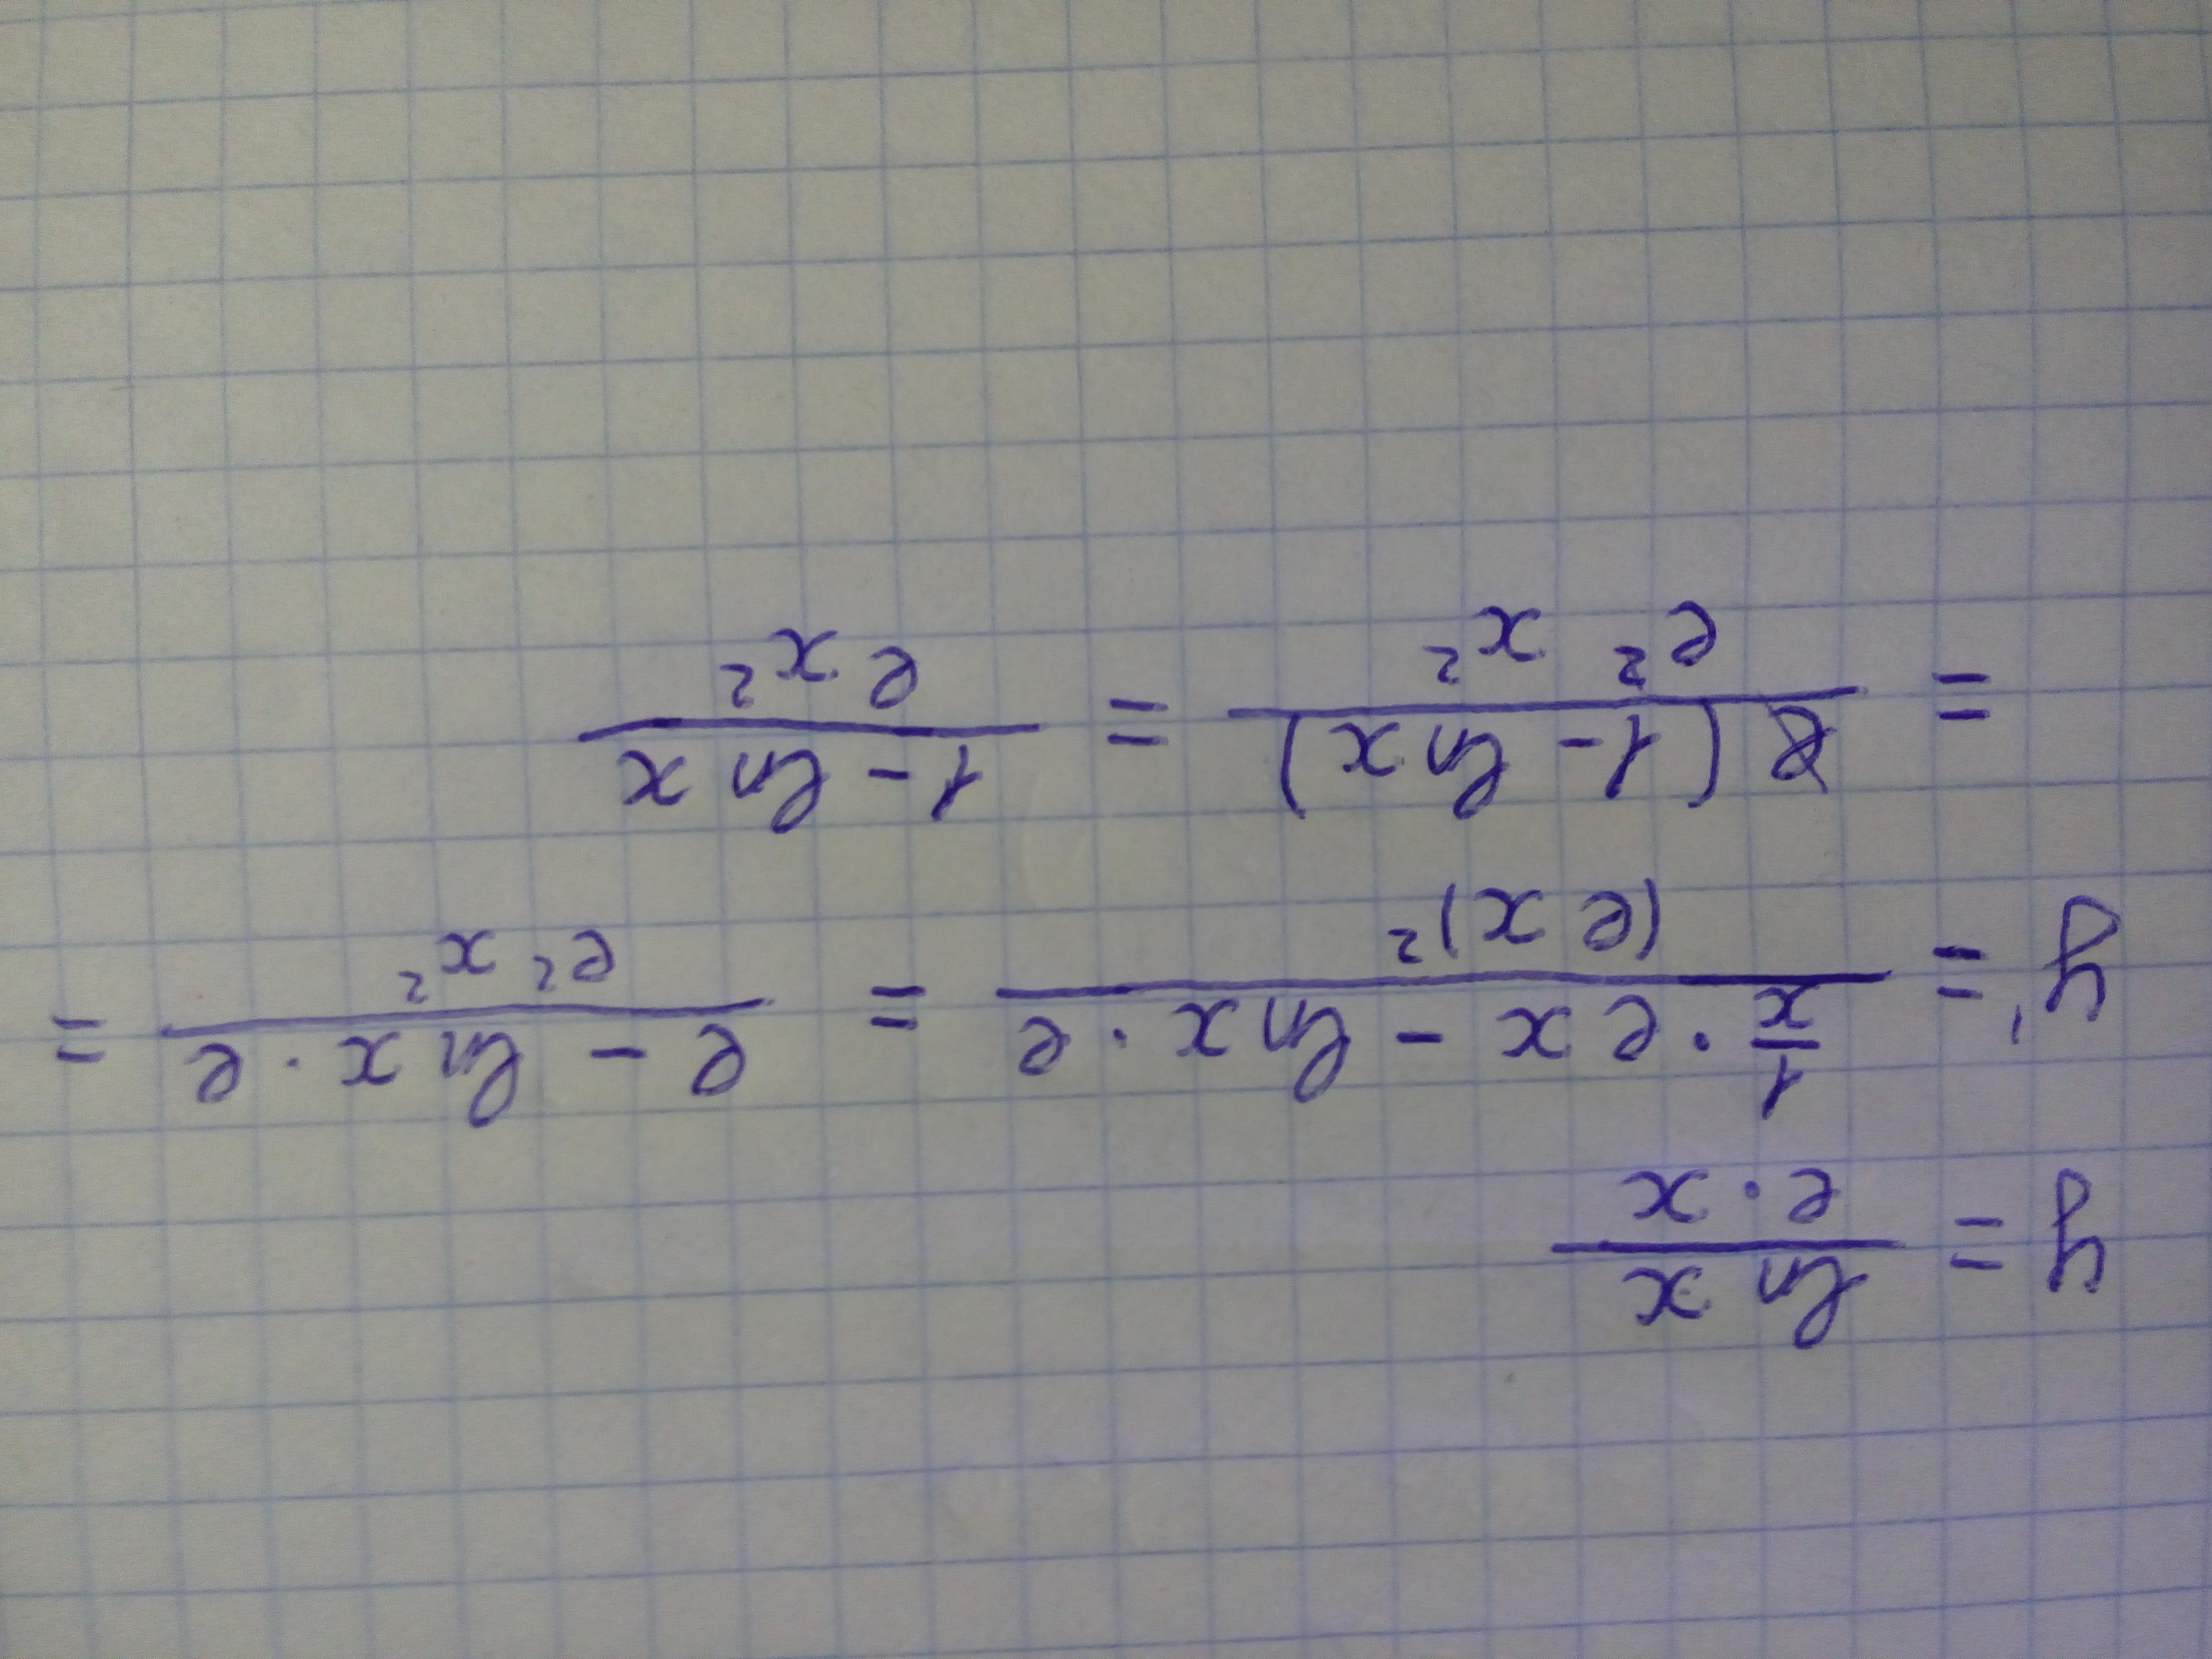 y = \frac{ln x}{e · x}
y' = \frac{\frac{1}{x} · e x - ln x · e}{(e x)^2} = \frac{e - ln x · e}{e^2 x^2} =
= \frac{e (1 - ln x)}{e^2 x^2} = \frac{1 - ln x}{e x^2}